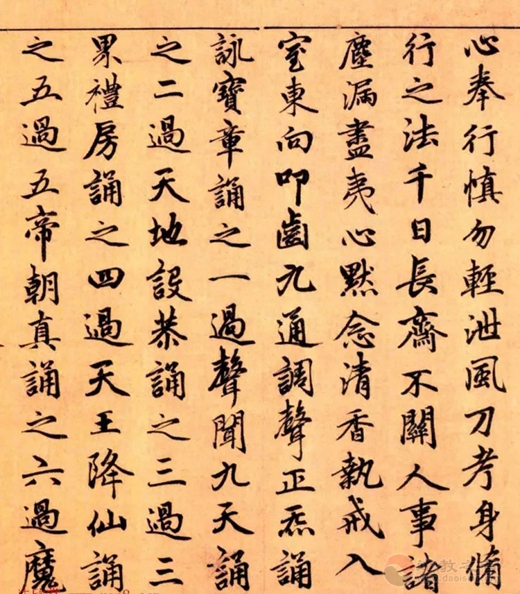 心奉行慎勿輕泄風刀考身脩
行之法千日長齋不關人事諸
塵漏盡夷心默念清香執戒入
室東向叩齒九通調聲正炁誦
詠寶章誦之一過聲聞九天誦
之二過天地設恭誦之三過三
界禮房誦之四過天王降仙誦
之五過五帝朝真誦之六過魔